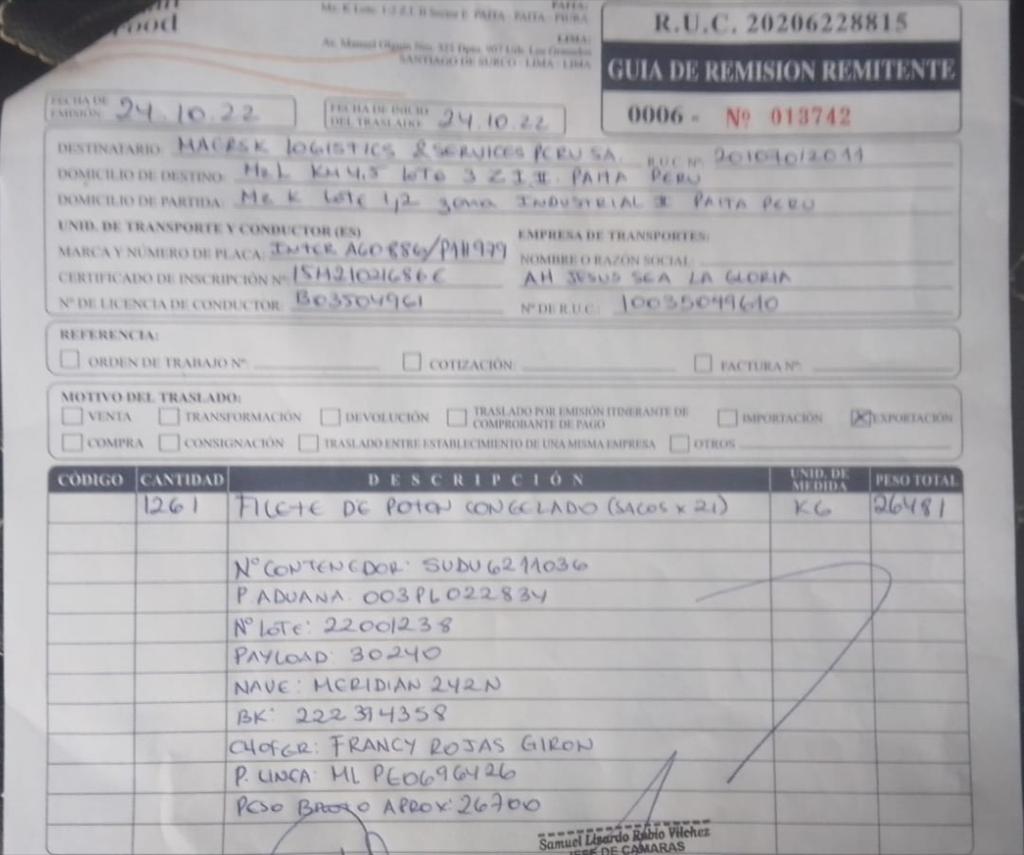 ood
Mz. K Lote: 1-2 Z.I. II PAITA - PAITA - PIURA
LIMA:
Av. Manuel Olguin Nro. 325 Dpto. 907 Urb. Los Granados
SANTIAGO DE SURCO - LIMA - LIMA
R.U.C. 20206228815
GUIA DE REMISION REMITENTE
0006 - Nº 013742
FECHA DE EMISIÓN: 24.10.22
FECHA DE INICIO DEL TRASLADO: 24.10.22
DESTINATARIO: MAERSK LOGISTICS & SERVICES PERU SA. R.U.C Nº: 20107012011
DOMICILIO DE DESTINO: Mz L KM 4,5 LOTO 3 Z I II PAITA PERU
DOMICILIO DE PARTIDA: Mz K Lote 1,2 zona INDUSTRIAL II PAITA PERU
UNID. DE TRANSPORTE Y CONDUCTOR (ES)
EMPRESA DE TRANSPORTES:
MARCA Y NÚMERO DE PLACA: INTER AGO886/P1H979
NOMBRE O RAZÓN SOCIAL:
CERTIFICADO DE INSCRIPCIÓN Nº: 15M21021686E
AH JESUS SEA LA GLORIA
Nº DE LICENCIA DE CONDUCTOR: B03504961
Nº DE R.U.C.: 10035049610
REFERENCIA:
ORDEN DE TRABAJO Nº:
COTIZACIÓN:
FACTURA Nº:
MOTIVO DEL TRASLADO:
VENTA
TRANSFORMACIÓN
DEVOLUCIÓN
TRASLADO POR EMISIÓN ITINERANTE DE COMPROBANTE DE PAGO
IMPORTACIÓN
EXPORTACIÓN
COMPRA
CONSIGNACIÓN
TRASLADO ENTRE ESTABLECIMIENTO DE UNA MISMA EMPRESA
OTROS
CÓDIGO CANTIDAD DESCRIPCIÓN UNID. DE MEDIDA PESO TOTAL
1261 FILETE DE POTON CONGELADO (SACOS x 21) KG 26481
Nº CONTENEDOR: SUDU6211036
P ADUANA: 003PL022834
Nº LOTE: 22001238
PAYLOAD: 30240
NAVE: MERIDIAN 242N
BK: 222394358
CHOFER: FRANCY ROJAS GIRON
P. LINEA: ML PE0696426
PESO BRUTO APROX: 26700
Samuel Lisardo Rubio Vilchez
JEFE DE CAMARAS